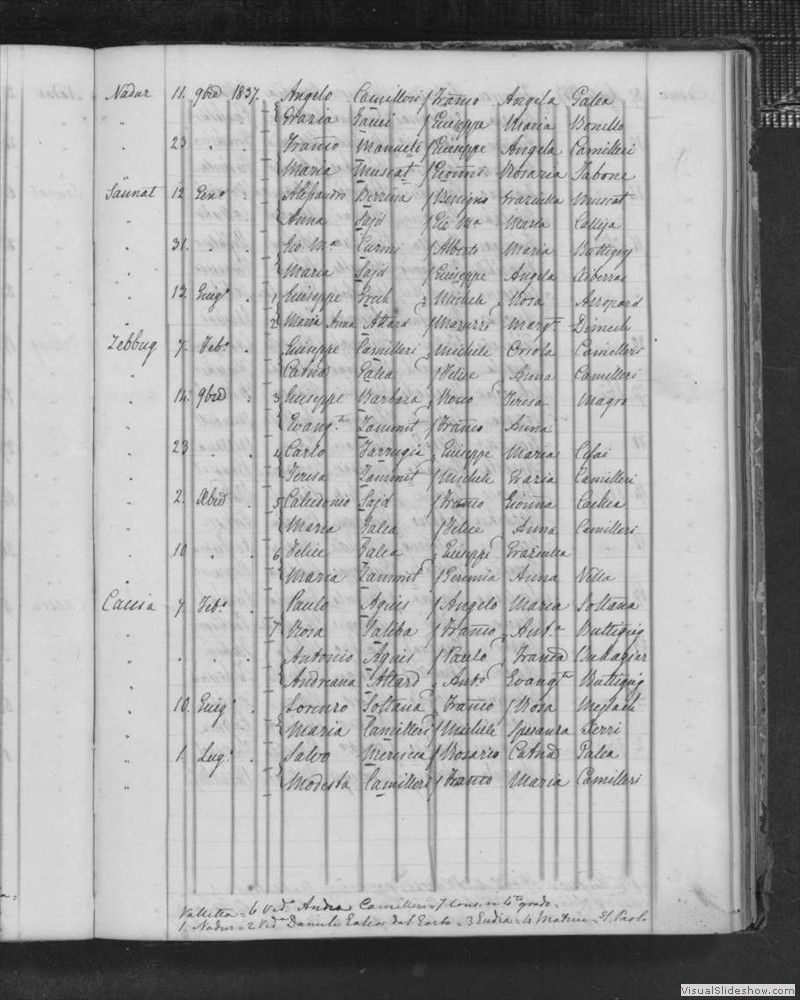 Nadur 11. 9bre 1837. Angelo Camilleri / Franco Angela Galea
" Grazia Gauci / Giuseppe Maria Bonello
" 23 " " Franco Manuele / Giuseppe Angela Camilleri
" Maria Muscat / Gionni Rosaria Tabone
Sannat 12 Geno " Alessandro Benigno Graziulla Muscat
" Anna Sajd / Gio Ma Maria Calleja
" 31. " " Gio. Ma Curmi / Alberto Maria Buttigig
" Maria Sajd / Giuseppe Angela
" 13. Giugo " 1 Giuseppe Grech Michele Rosa
" 2 Maria Anna Attard / Margta Dimech
Zebbug 7. Febo " Giuseppe Camilleri Michele Orsola Camilleri
" Catna Galea / Felice Anna Camilleri
" 14. 9bre " 3 Giuseppe Barbara Teresa Magro
" Evangta Zammit / Franco Anna
" 23 " " 4 Carlo Farrugia Giuseppe Maria Cefai
" Teresa Zammit / Michele Grazia Camilleri
" 2. Xbre " 5 Calcedonio Sajd / Franco Gionna
" Maria Galea / Felice Anna Camilleri
" 10 " " 6 Felice Galea Giuseppe Graziulla
" Maria Zammit / Geremia Anna Vella
Caccia 7 Febo " Paulo Agius / Angelo Maria Soltana
" 7 Rosa Galiba / Franco Anta Buttigig
" " " " Antonio Agius / Paulo Franca Buhagiar
" Andreana Attard Anto Evangta Buttigig
" 10. Giugo " Lorenzo Soltana Franco / Rosa
" Maria Camilleri / Michele Speranza Ferri
" 1. Lugo " Salvo / Rosario Catna Galea
" Modesta Camilleri / Franco Maria Camilleri
Valletta = 6 Veda Andrea Camilleri = 7 Cons. in 4to grado.
1. Nadur = 2 Veda Daniele = 4 = S. Paolo
VisualSlideshow.com